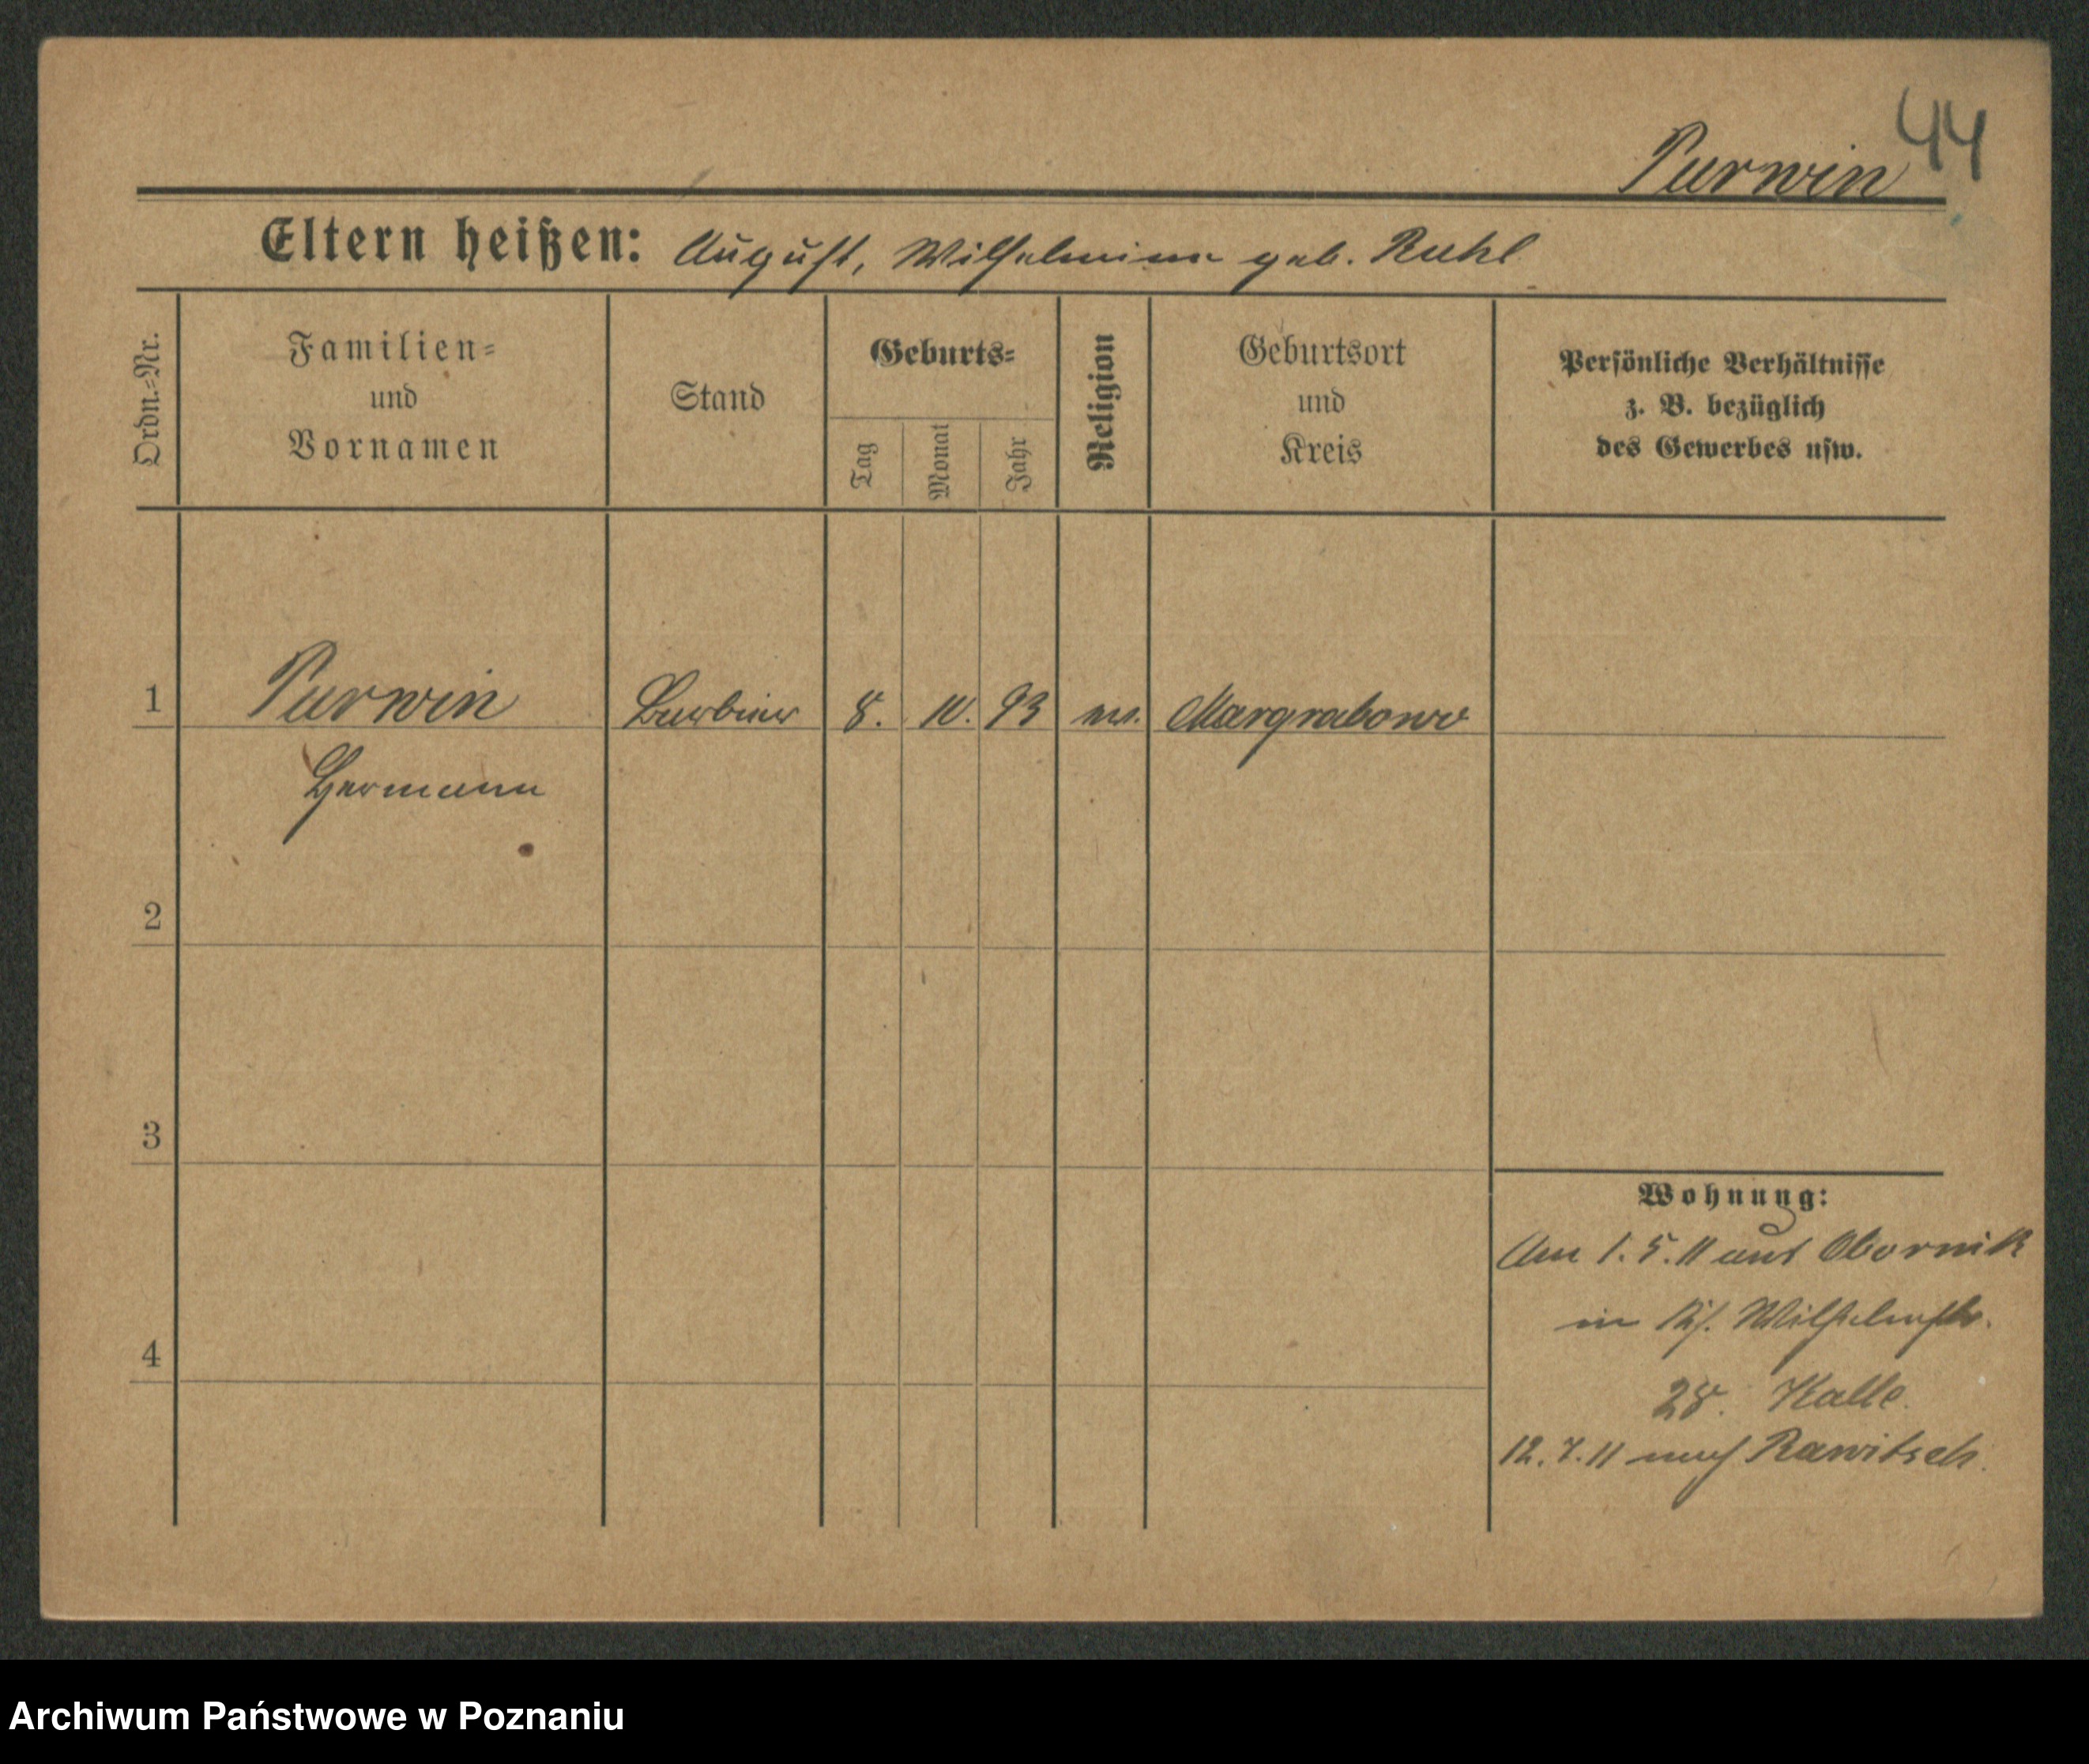 44
Purwin
Eltern heißen: August, Wilhelmine geb. Ruhl
Ordn.=Nr.
Familien=
und
Vornamen
Stand
Geburts=
Tag
Monat
Jahr
Religion
Geburtsort
und
Kreis
Persönliche Verhältnisse
z. B. bezüglich
des Gewerbes usw.
1 Purwin Barbier 8. 10. 93 ev. Margrabowo
Hermann
2
3
4
Wohnung:
Am 1. 5. 11 aus Obornik
in Wilhelmstr.
Kalle.
12. 7. 11 nach Rawitsch.
Archiwum Państwowe w Poznaniu